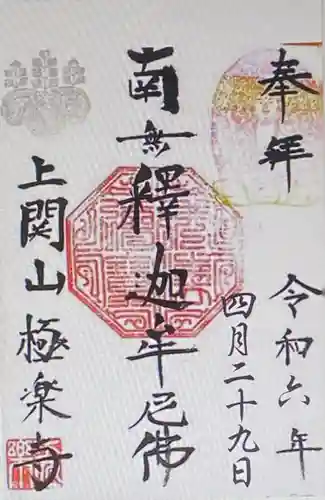 奉拜
令和六年
四月二十九日
南無釋迦牟尼佛
上関山極楽寺